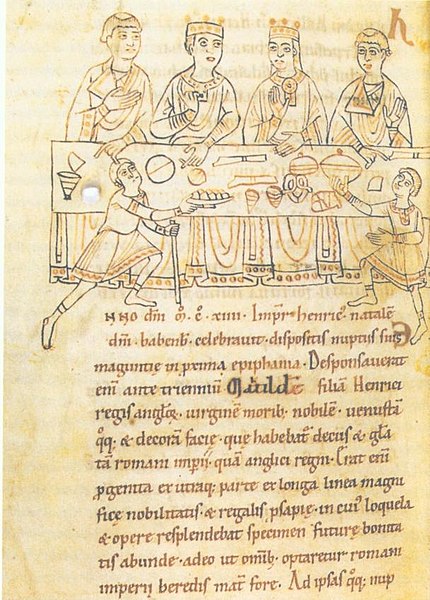 h
NNO dm̄ · m̊ · c̊ · xiiii · Imp̄r henric̄ · natalē
dm̄ · babenb̄ · celebravit · dispositis nuptiis suis
maguntie in p̱ima epiphania · Desponsaverat
enī ante trienniū Matildē filiā Henrici
regis angloꝝ · virginē morib; nobilē · venustā
q̊ꝙ · & decorā facie · que habebat̄ decus & gl̄a
tā romani imp̱ij quā anglici regni · Erat enī
ꝓgenita ex utraq; parte ex longa linea magni
fice nobilitatis · & regalis psapie · in cui' loquela
& opere resplendebat specimen future bonita
tis abunde · adeo ut omīb; optaretur romani
imperij heredis mat̄ fore · Ad ipsas q̊ꝙ; nup